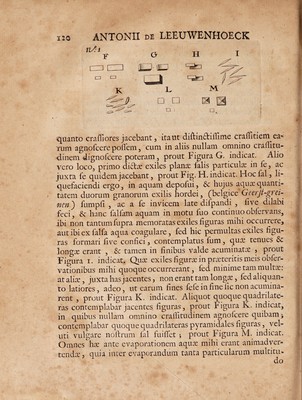 120 ANTONII DE LEEUWENHOECK
F G H I
K L M
quanto crassiores jacebant, ita ut distinctissime crassitiem ea-
rum agnoscere possem, cum in aliis nullam omnino crassitu-
dinem dignoscere poteram, prout Figura G. indicat. Alio
vero loco, primo dictæ exiles planæ falis particulæ in se, ac
juxta se quidem jacebant, prout Fig. H. indicat. Hoc sal, li-
quefaciendi ergo, in aquam deposui, & hujus aquæ quanti-
tatem duorum granorum exilis hordei, (belgice Geerst-grei-
nen) sumpsi, ac a se invicem late dispandi, sive dilabi
feci, & hanc salsam aquam in motu suo continuo observans,
ibi non tantum supra memoratas exiles figuras mihi occurrere,
aut ibi ex salsa aqua coagulare, sed hic permultas exiles figu-
ras formari sive confici, contemplatus sum, quæ tenues &
longæ erant, & tamen in finibus valde acuminatæ; prout
Figura I. indicat, Quæ exiles figuræ in præteritis meis obser-
vationibus mihi quoque occurrerant, sed minime tam multæ:
at aliæ, juxta has jacentes, non erant tam longæ, sed aliquan-
to latiores, adeo, ut earum fines sese in fine sic non acumina-
rent, prout Figura K. indicat. Aliquot quoque quadrilate-
ras contemplabar jacentes figuras, prout Figura K. indicat,
in quibus nullam omnino crassitudinem agnoscere quibam,
contemplabar quoque quadrilateras pyramidales figuras, vel-
uti vulgare nostrum sal fuisset; prout Figura M. indicat.
Omnes hæ ante evaporationem aquæ mihi erant animadver-
tendæ, quia inter evaporandum tanta particularum multitu-
do